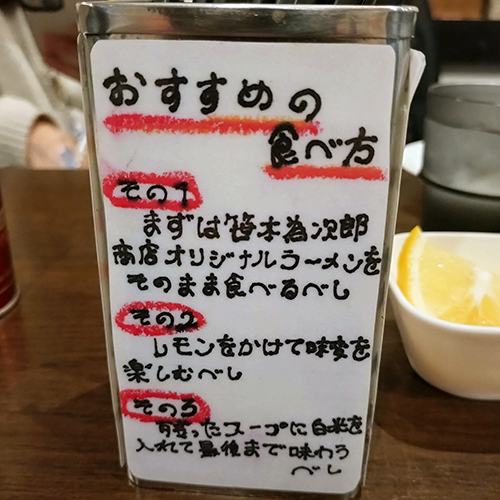 おすすめの
食べ方
その1
まずは笹本為次郎
商店オリジナルラーメンを
そのまま食べるべし
その2
レモンをかけて味変を
楽しむべし
その3
残ったスープに白米を
入れて最後まで味わう
べし